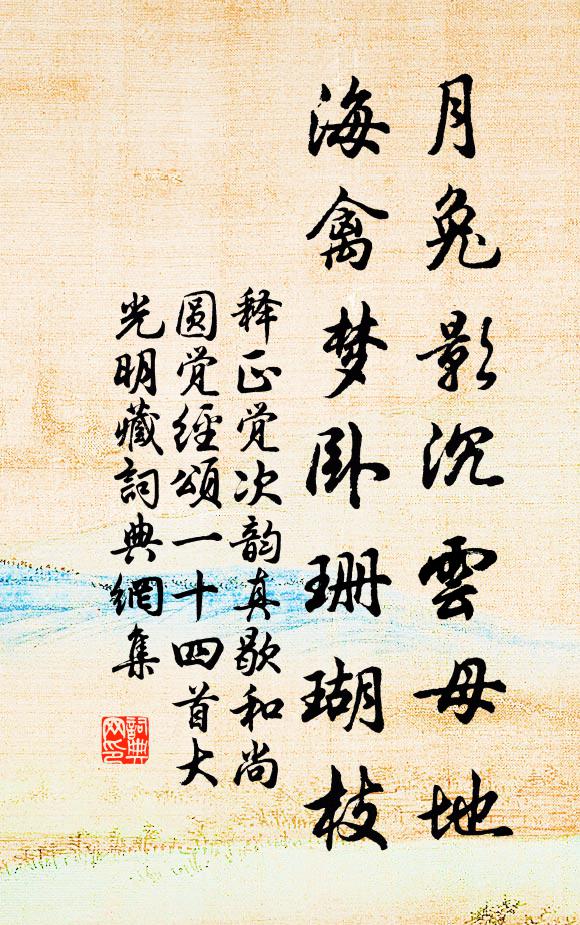 月兔影沉雲母地
海禽梦卧珊瑚枝
释正觉次韵真歇和尚
圆觉經頌一十四首大
光明藏詞典網集
詞典網印